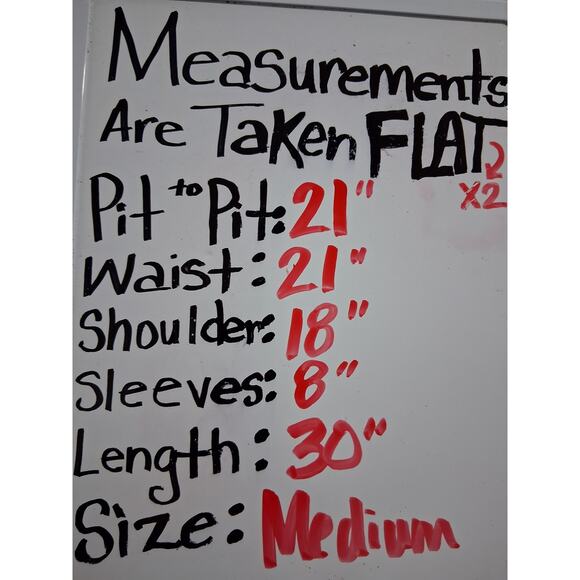 Measurements
Are Taken FLAT
x2
Pit to Pit: 21"
Waist: 21"
Shoulder: 18"
Sleeves: 8"
Length: 30"
Size: Medium